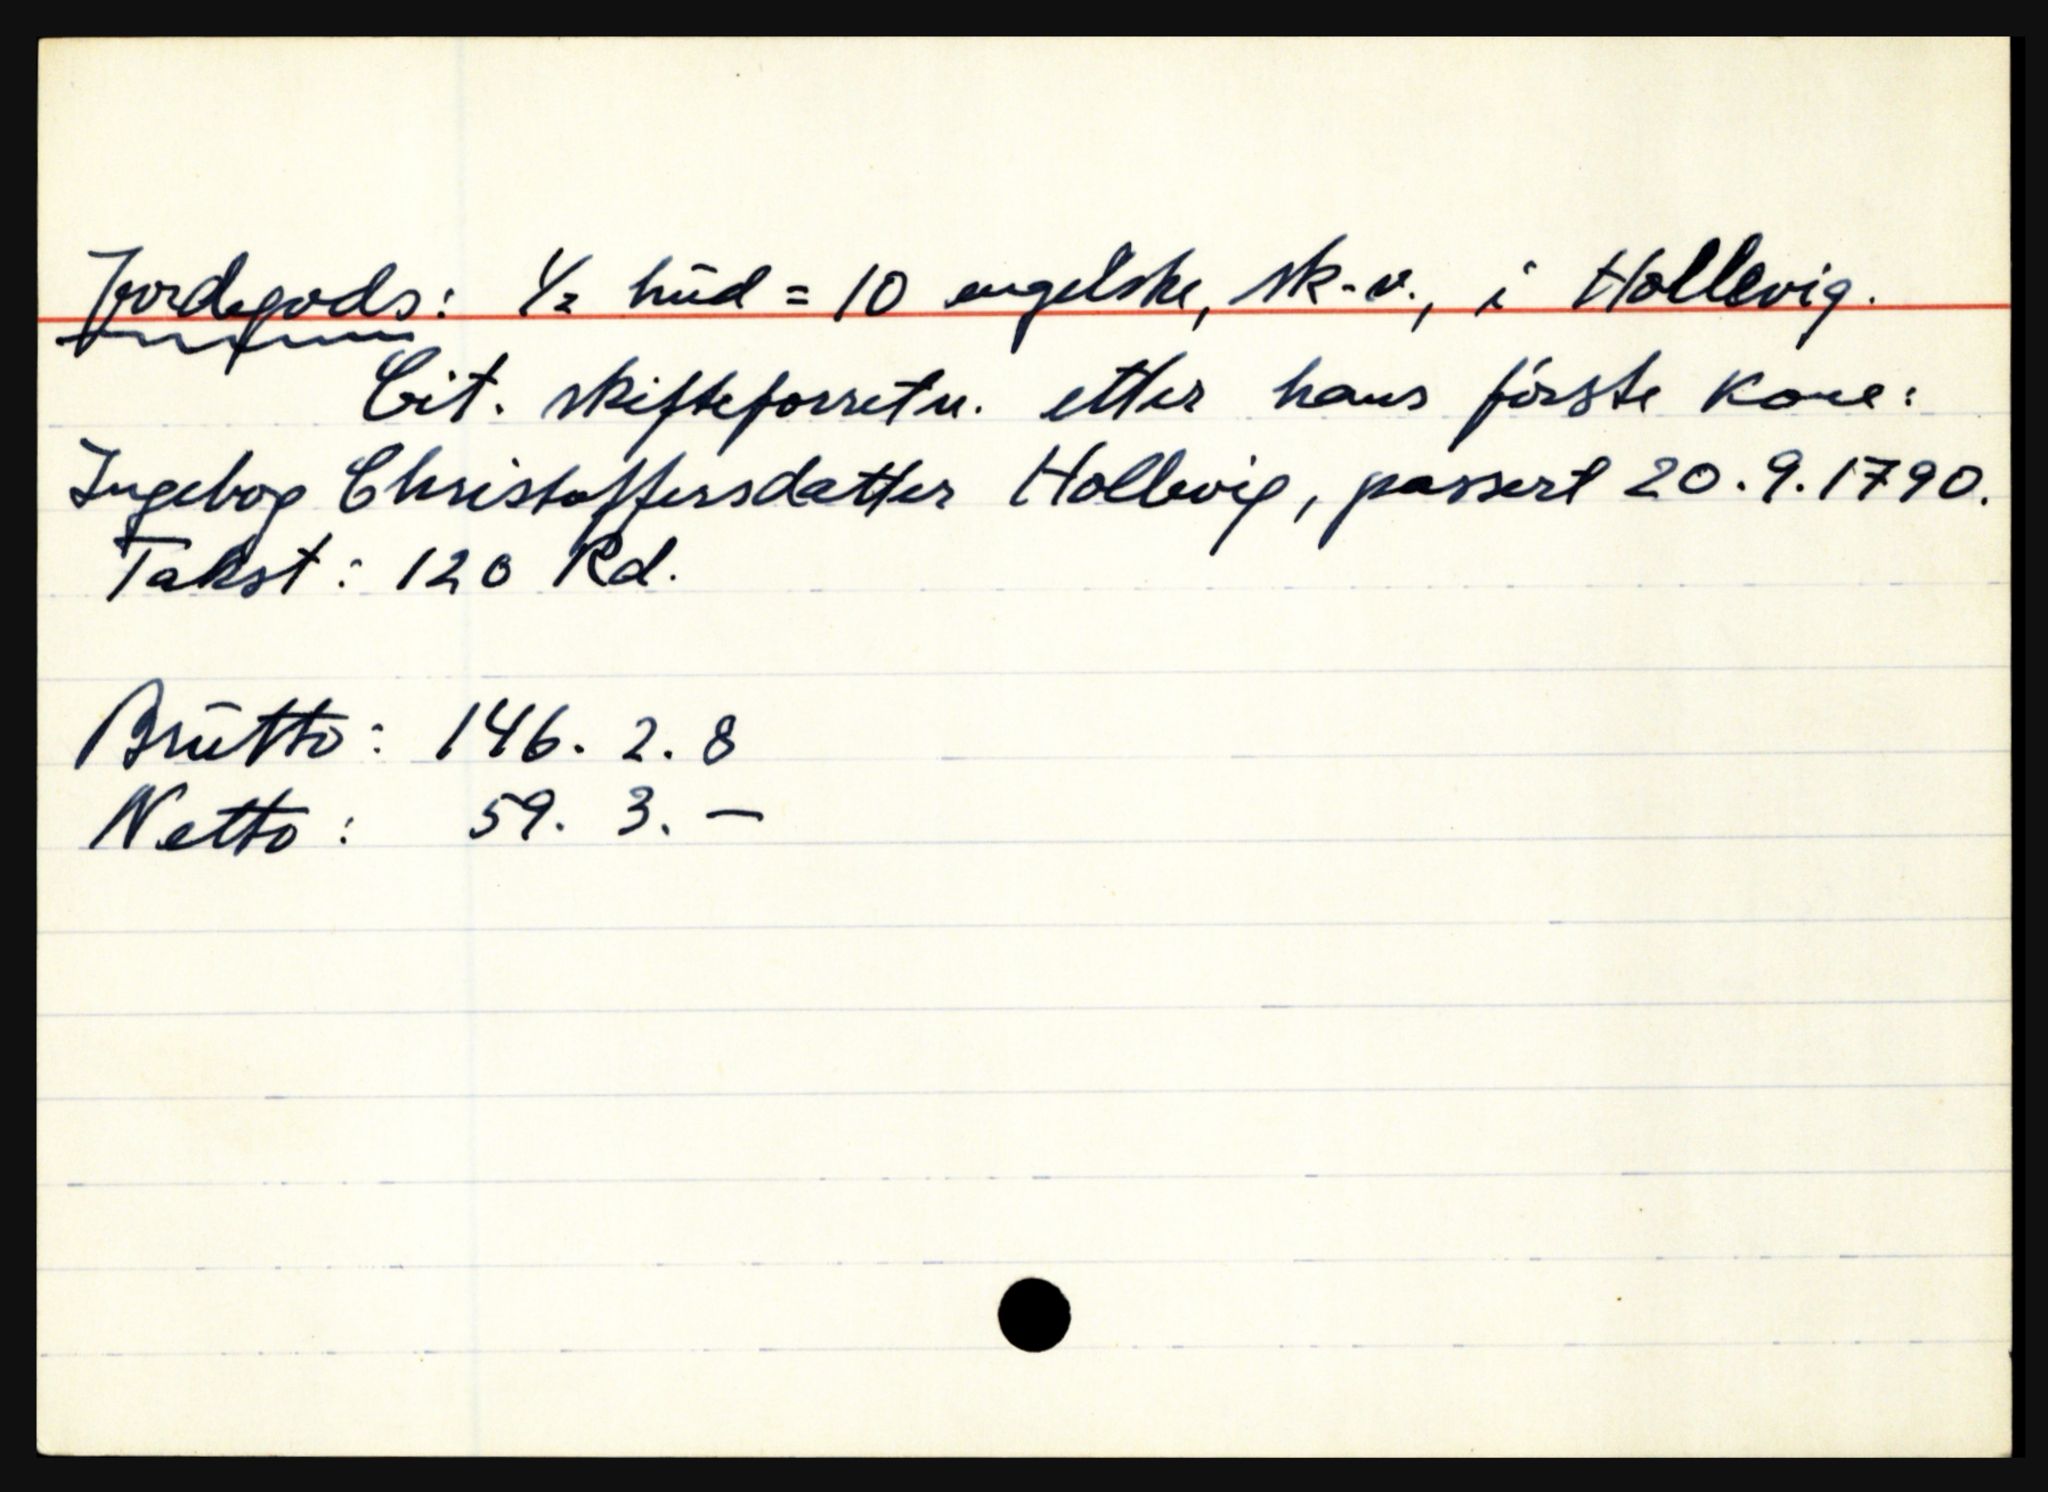 Jordegods: 1/2 hud = 10 engelske, sk-v., i Hollevig.
Cit. skifteforretn. etter hans første kone:
Ingebog Christoffersdatter Hollevig, passert 20.9.1790.
Takst: 120 Rd.
Brutto: 146. 2. 8
Netto: 59. 3. —